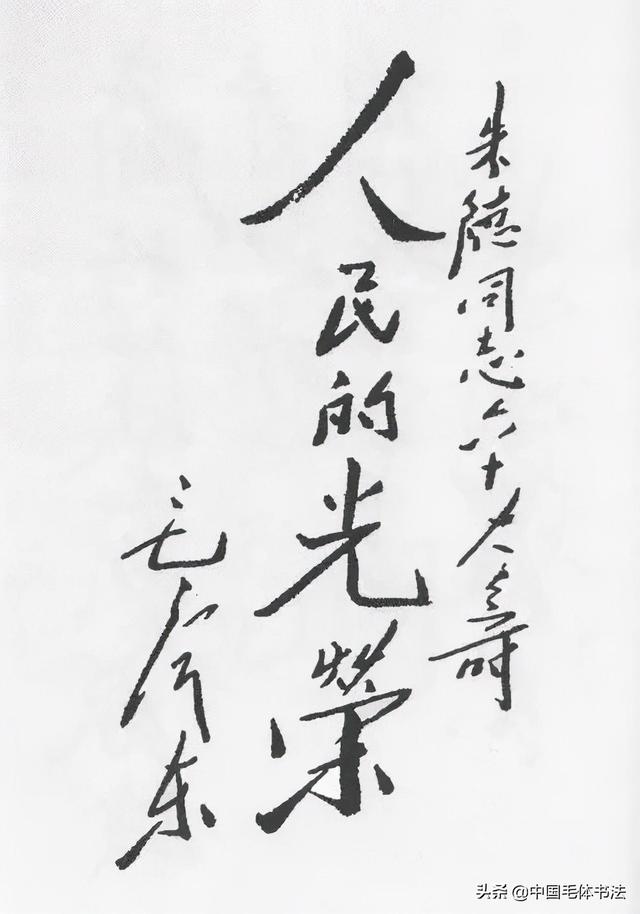 朱德同志六十大壽
人民的光榮
毛泽东
头条 @中国毛体书法